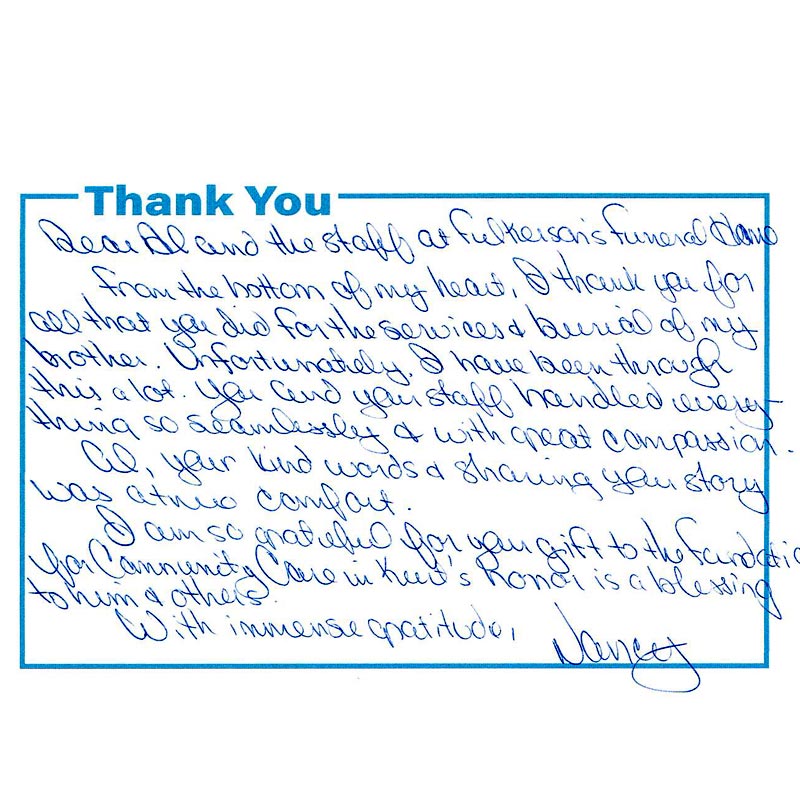 Thank You
Dear Al and the staff at Fulkerson's Funeral Home
From the bottom of my heart, I thank you for
all that you did for the services & burial of my
brother. Unfortunately, I have been through
this a lot. You and your staff handled every-
thing so seamlessly & with great compassion.
Al, your kind words & sharing your story
was a true comfort.
I am so grateful for your gift to the Foundatio
for Community Care in Kurt's honor is a blessing
to him & others.
With immense gratitude,
Nancy